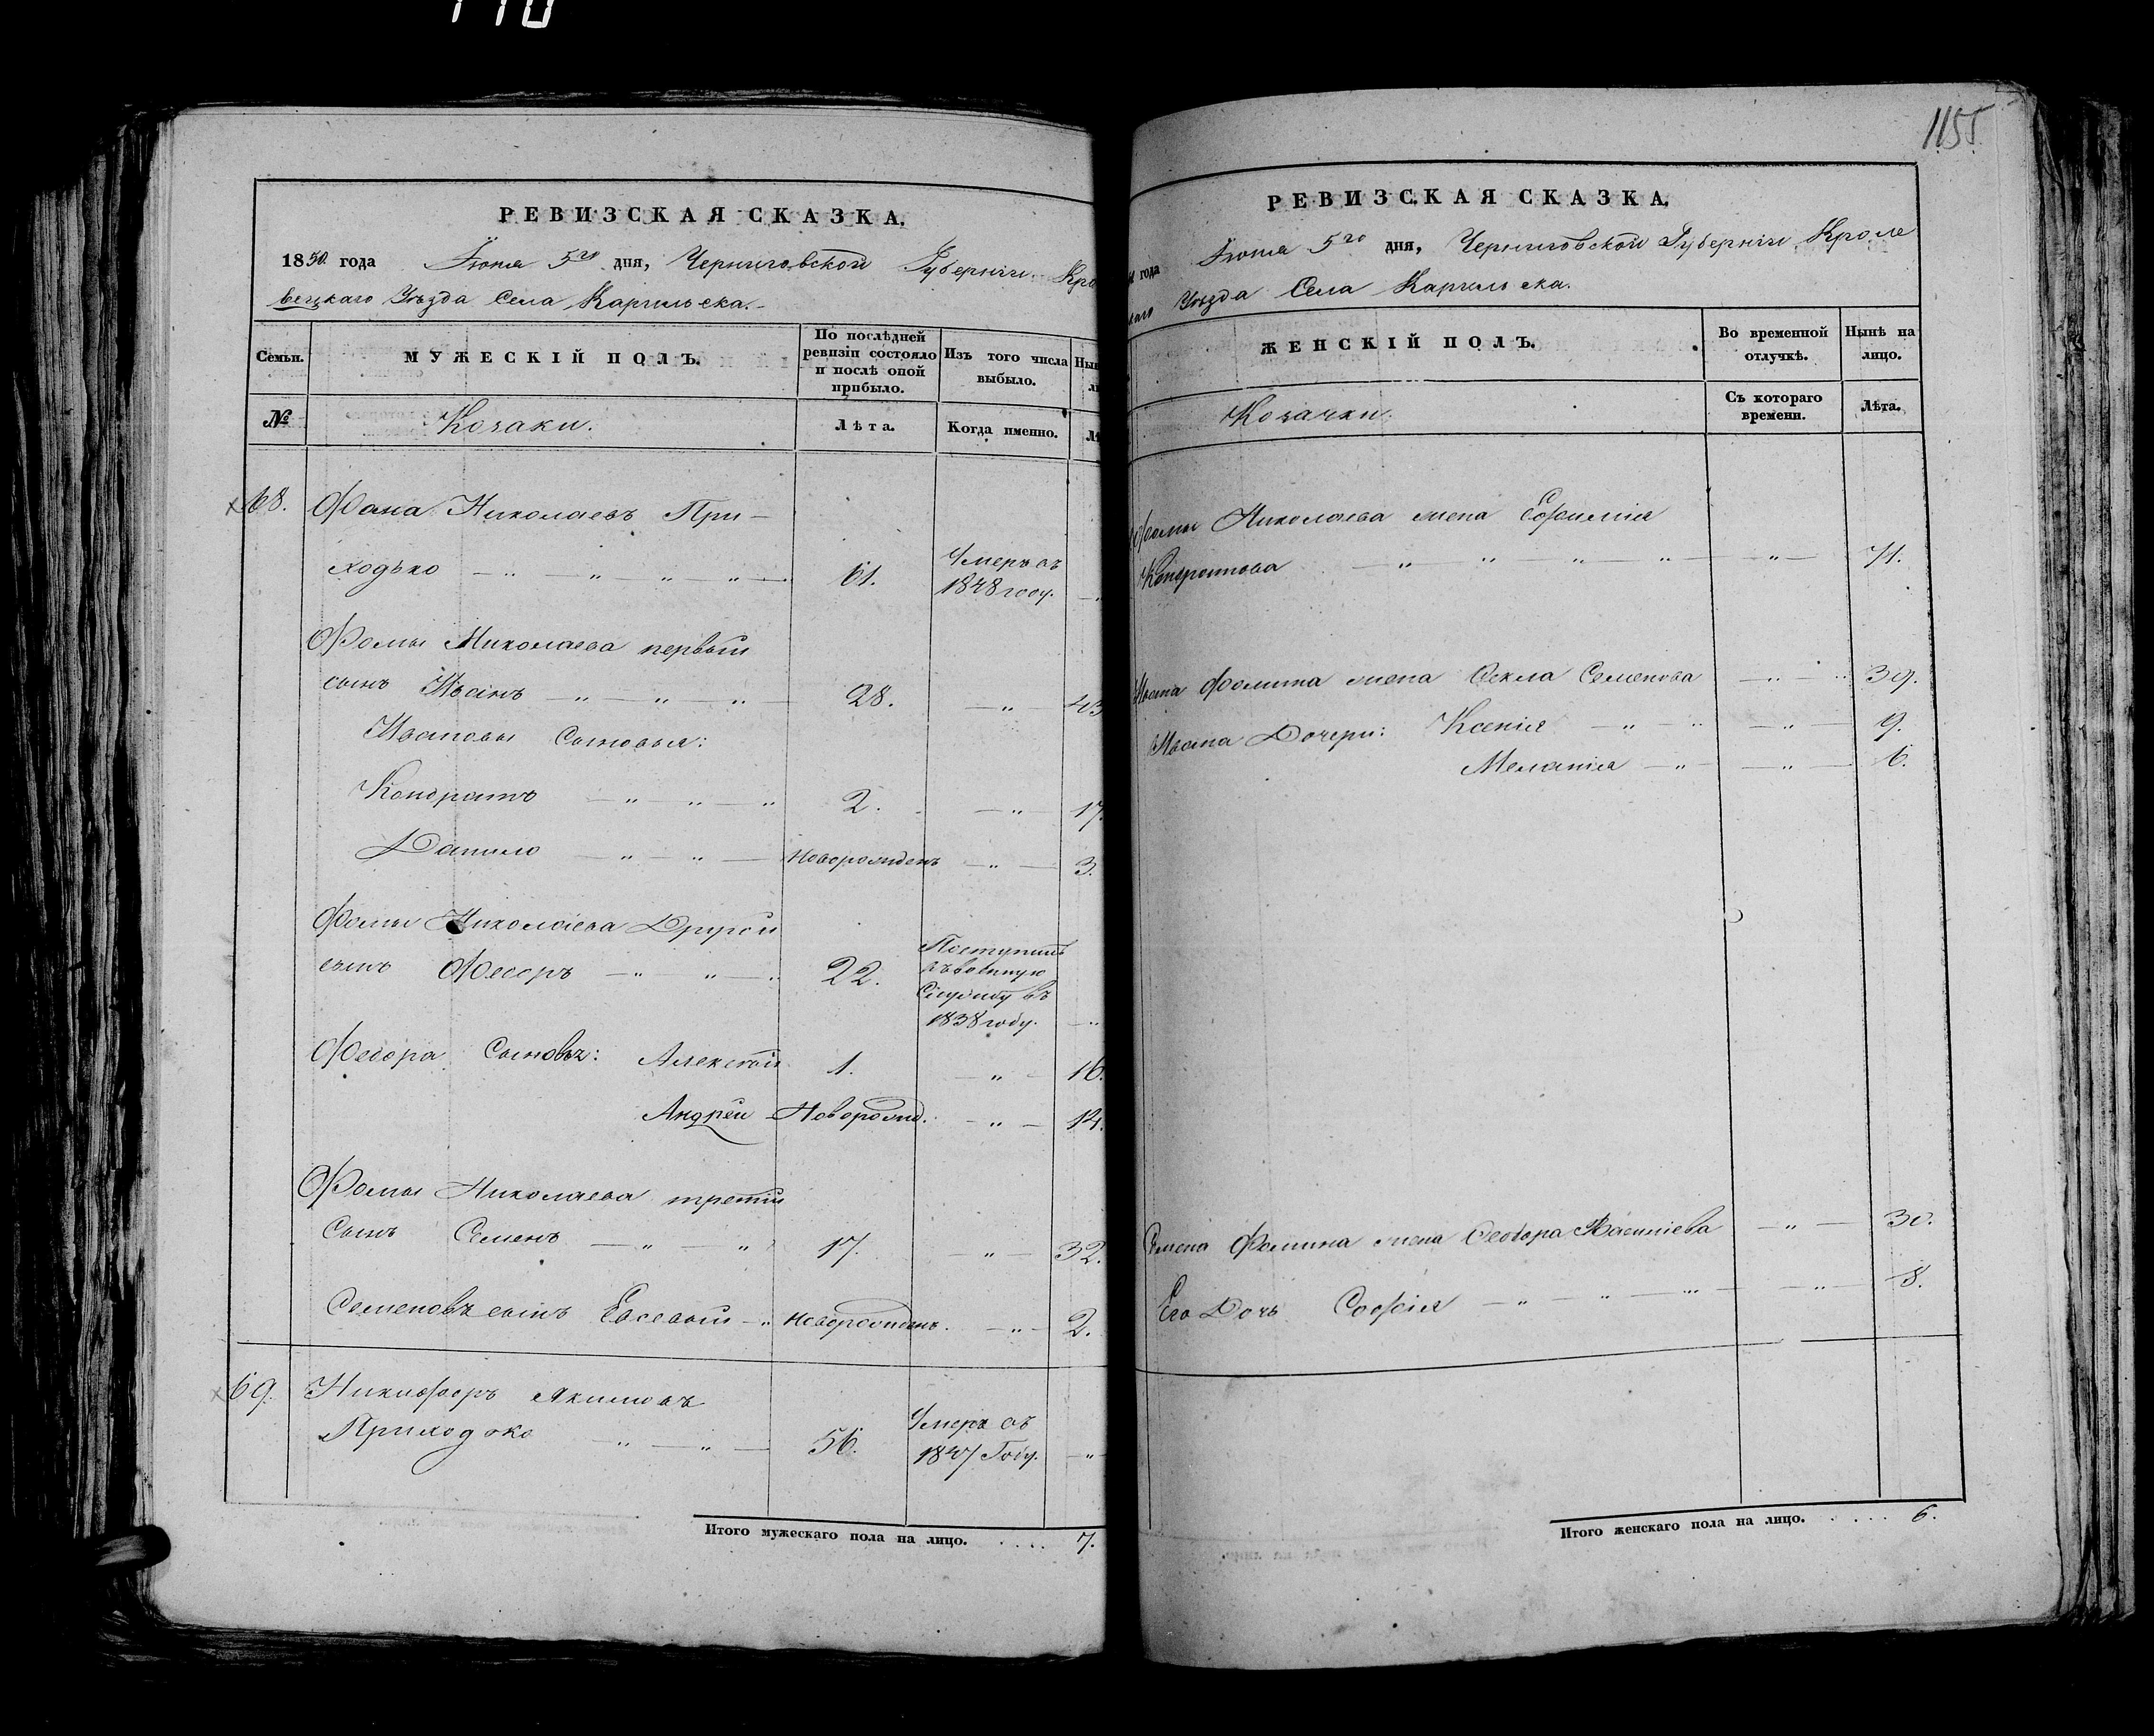 110
РЕВИЗСКАЯ СКАЗКА.
1850 года Іюня 5го дня, Черниговской Губерніи Кро
вецкаго Уѣзда Села Каричьска.
Семьи.
МУЖЕСКІЙ ПОЛЪ.
По послѣдней ревизіи состояло и послѣ оной прибыло.
Изъ того числа выбыло.
№
Козаки.
Лѣта.
Когда именно.
68. Фома Николаевъ При-
ходько 61. Умеръ въ 1848 году.
Фомы Николаева первый
сынъ Иванъ 28. 43
Ивановы Сыновья:
Кондратъ 2. 17.
Данило новорожденъ 3.
Фомы Николаева Другой
сынъ Федоръ 22. Поступилъ въ военную Службу въ 1838 году.
Федора Сыновья: Алексѣй 1. 16.
Андрей Новорожд. 14.
Фомы Николаева третій
Сынъ Семенъ 17. 32.
Семеновъ сынъ Евсевій новорожденъ. 2.
69. Никифоръ Якимовъ
Приходько 56. Умеръ въ 1847 Году.
Итого мужескаго пола на лицо. . . . . 7.
1155
РЕВИЗСКАЯ СКАЗКА.
года Іюня 5го дня, Черниговской Губерніи Кроле
каго Уѣзда Села
ЖЕНСКІЙ ПОЛЪ.
Во временной отлучкѣ.
Нынѣ на лицо.
Козачки.
Съ котораго времени.
Лѣта.
Фомы Николаева жена Ефимія
Кондратова 71.
Ивана Фомина жена Фекла Семенова 39.
Ивана Дочери: Ксенія 9.
Меланія 6.
Семена Фомина жена Феодора Васильева 30.
Его Дочь Софія 8.
Итого женскаго пола на лицо. . . . . 6.